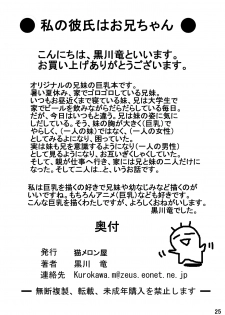 ● 私の彼氏はお兄ちゃん ●
こんにちは、黒川竜といいます。
お買い上げありがとうございます。
オリジナルの兄妹の巨乳本です。
暑い夏休み、家でゴロゴロしている兄妹。
いつもお昼近くまで寝ている妹、兄は大学生で
家でビールを飲みながらだらだらしている毎日。
だが、今日はいつもと違う。兄は妹の姿に気に
しだしている。そう、妹の胸が大きく(巨乳)で
やらしく、(一人の妹)ではなく、(一人の女性)
としてみるよになり、困っていた。
実は妹も兄を意識するようになり(一人の男性)
として見るようになり、お互いぎくしゃくしていた。
そして、親が仕事へ行き、家には兄と妹の二人だけに
なった。そして二人は…と、いうお話です。
私は巨乳を描くのが好きで兄妹や幼なじみなど描くのが
いいですね。もちろんアニメ(巨乳)なども好きです。
こんな巨乳を描くわたしですが、よろしくおねがいします。
黒川竜でした。
奥付
発行 猫メロン屋
著者 黒川 竜
連絡先 Kurokawa.m@zeus.eonet.ne.jp
― 無断複製、転載、未成年購入を禁止します ―
25